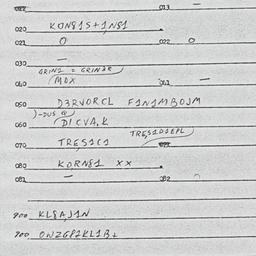 013 —
020 KON81S+1N81
021 0 022 0
030 —
GRIN2 = GRIN3R
040 MDX 041 —
050 D3RVORCL F1N1MBOJM
060 DICVA,K
TRES1D1EPL
070 TRES1C1
080 KORN81 XX
081 — 082
900 KL8AJ1N
900 OWZGP2KL1B+